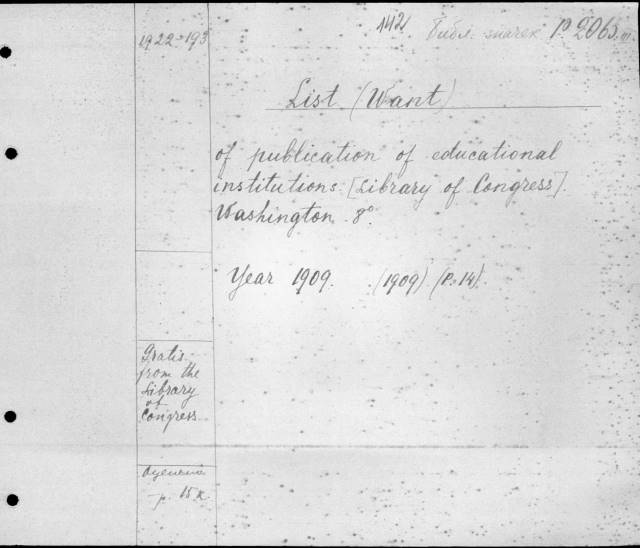 142 Библ. значек P 2065
1922-193
List (Want)
of publication of educational
institutions. [Library of Congress].
Washington. 8°.
Year 1909. (1909) (P. 14).
Gratis
from the
Library
of
Congress
р. 15 к.